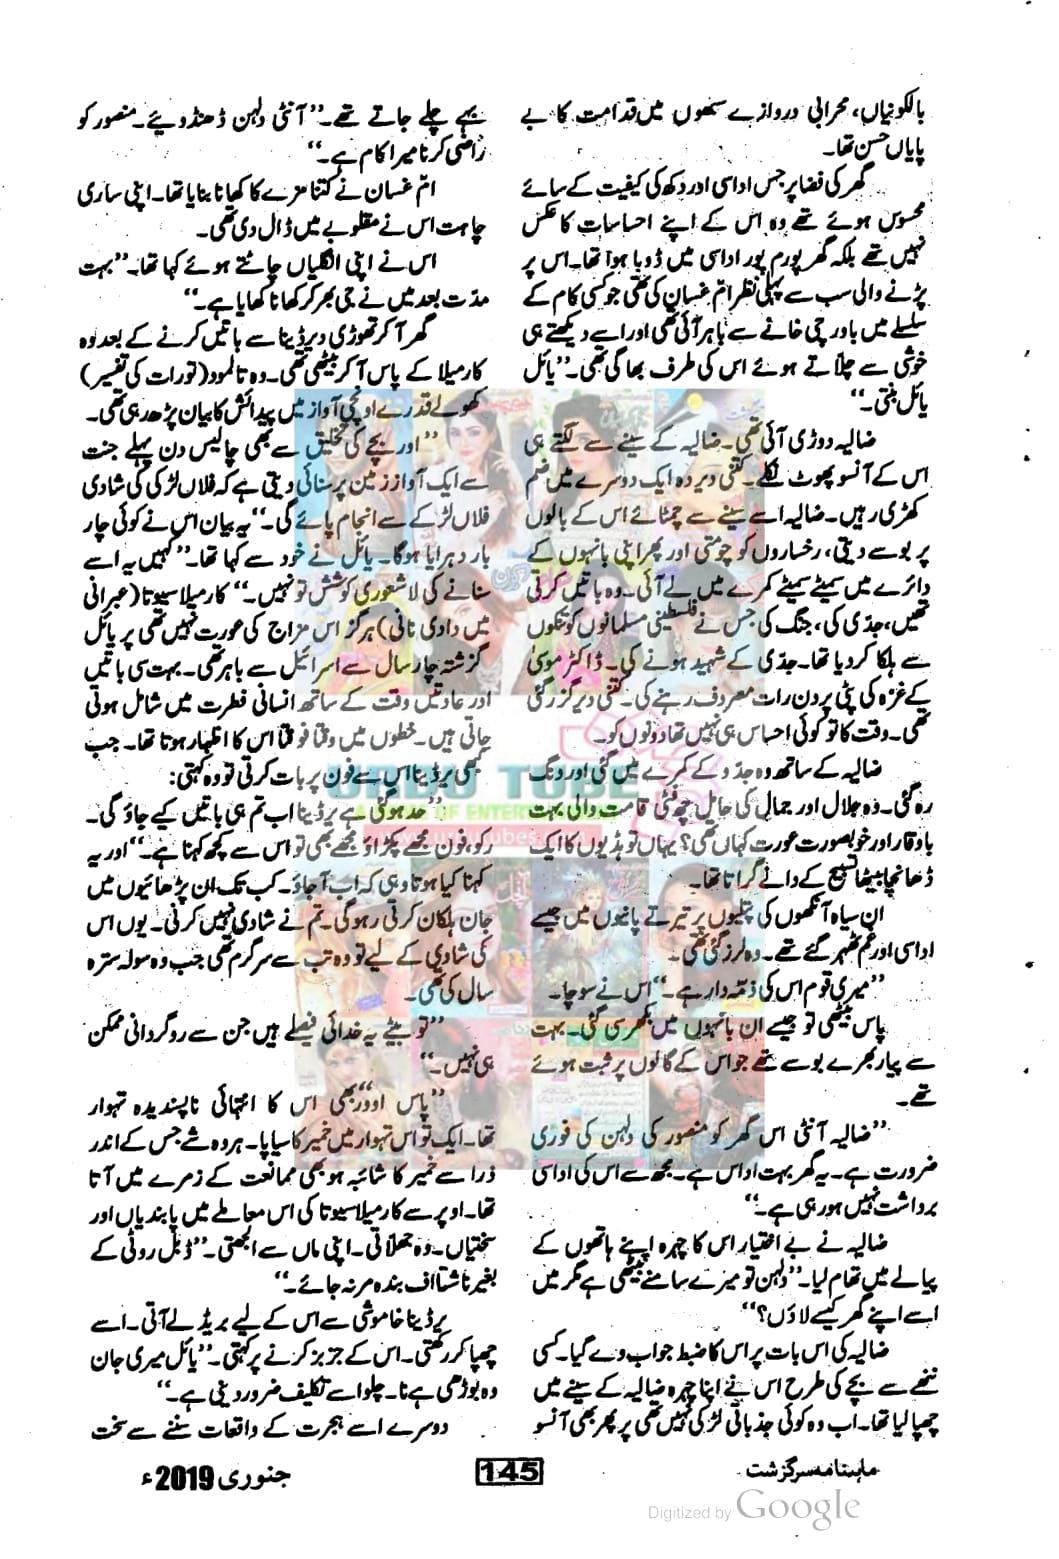 بالکونیاں، محرابی دروازے سبھوں میں قدامت کا بے
پایاں حسن تھا۔
گھر کی فضا پر جس اداسی اور دکھ کی کیفیت کے سائے
محسوس ہوئے تھے وہ اس کے اپنے احساسات کا عکس
نہیں تھے بلکہ گھر پورم پور اداسی میں ڈوبا ہوا تھا۔ اس پر
پڑنے والی سب سے پہلی نظر امّ غسان کی تھی جو کسی کام کے
سلسلے میں باورچی خانے سے باہر آئی تھی اور اسے دیکھتے ہی
خوشی سے چلاتے ہوئے اس کی طرف بھاگی تھی۔ ”یائل
یائل بنتی۔“
ضالیہ دوڑی آئی تھی۔ ضالیہ کے سینے سے لگتے ہی
اس کے آنسو پھوٹ نکلے۔ کتنی دیر وہ ایک دوسرے میں ضم
کھڑی رہیں۔ ضالیہ اسے سینے سے چمٹائے اس کے بالوں
پر بوسے دیتی، رخساروں کو چومتی اور پھر اپنی بانہوں کے
دائرے میں سمیٹے سمیٹے کمرے میں لے آئی۔ وہ باتیں کرتی
تھیں، جدّی کی، جنگ کی جس نے فلسطینی مسلمانوں کو تنکوں
سے ہلکا کر دیا تھا۔ جدّی کے شہید ہونے کی۔ ڈاکٹر موسیٰ
کے غزہ کی پٹی پر دن رات مصروف رہنے کی۔ کتنی دیر گزر گئی
تھی۔ وقت کا تو کوئی احساس ہی نہیں تھا دونوں کو۔
ضالیہ کے ساتھ وہ جدّو کے کمرے میں گئی اور دنگ
رہ گئی۔ وہ جلال اور جمال کی حامل چھ فٹی قامت والی بہت
باوقار اور خوبصورت عورت کہاں تھی؟ یہاں تو ہڈیوں کا ایک
ڈھانچا بیٹھا تسبیح کے دانے گراتا تھا۔
ان سیاہ آنکھوں کی پتلیوں پر تیرتے پانیوں میں جیسے
اداسی اور غم ٹھہر گئے تھے۔ وہ لرز گئی تھی۔
”میری قوم اس کی ذمّہ دار ہے۔“ اس نے سوچا۔
پاس بیٹھی تو جیسے ان بانہوں میں بکھر سی گئی۔ بہت
سے پیار بھرے بوسے تھے جو اس کے گالوں پر ثبت ہوئے
تھے۔
”ضالیہ آنٹی اس گھر کو منصور کی دلہن کی فوری
ضرورت ہے۔ یہ گھر بہت اداس ہے۔ مجھ سے اس کی اداسی
برداشت نہیں ہو رہی ہے۔“
ضالیہ نے بے اختیار اس کا چہرہ اپنے ہاتھوں کے
پیالے میں تھام لیا۔ ”دلہن تو میرے سامنے بیٹھی ہے مگر میں
اسے اپنے گھر کیسے لاؤں؟“
ضالیہ کی اس بات پر اس کا ضبط جواب دے گیا۔ کسی
ننھے سے بچے کی طرح اس نے اپنا چہرہ ضالیہ کے سینے میں
چھپا لیا تھا۔ اب وہ کوئی جذباتی لڑکی نہیں تھی پر پھر بھی آنسو
بہے چلے جاتے تھے۔ ”آنٹی دلہن ڈھنڈویئے۔ منصور کو
راضی کرنا میرا کام ہے۔“
امّ غسان نے کتنا مزے کا کھانا بنایا تھا۔ اپنی ساری
چاہت اس نے مقلوبے میں ڈال دی تھی۔
اس نے اپنی انگلیاں چاٹتے ہوئے کہا تھا۔ ”بہت
مدّت بعد میں نے جی بھر کر کھانا کھایا ہے۔“
گھر آ کر تھوڑی دیر ڈینا سے باتیں کرنے کے بعد وہ
کارمیلا کے پاس آ کر بیٹھی تھی۔ وہ تالمود (تورات کی تفسیر)
کھولے قدرے اونچی آواز میں پیدائش کا بیان پڑھ رہی تھی۔
”اور بچے کی تخلیق سے بھی چالیس دن پہلے جنت
سے ایک آواز زمین پر سنائی دیتی ہے کہ فلاں لڑکی کی شادی
فلاں لڑکے سے انجام پائے گی۔“ یہ بیان اس نے کوئی چار
بار دہرایا ہوگا۔ یائل نے خود سے کہا تھا۔ ”کہیں یہ اسے
سنانے کی لاشعوری کوشش تو نہیں۔“ کارمیلا سیوتا (عبرانی
میں دادی نانی) ہرگز اس مزاج کی عورت نہیں تھی پر یائل
گزشتہ چار سال سے اسرائیل سے باہر تھی۔ بہت سی باتیں
اور عادتیں وقت کے ساتھ انسانی فطرت میں شامل ہوتی
جاتی ہیں۔ خطوں میں وقتاً فوقتاً اس کا اظہار ہوتا تھا۔ جب
کبھی برڈینا اس سے فون پر بات کرتی تو وہ کہتی:
”حد ہو گئی ہے برڈینا اب تم ہی باتیں کیے جاؤ گی۔
رکو، فون مجھے پکڑاؤ مجھے بھی تو اس سے کچھ کہنا ہے۔“ اور یہ
کہنا کیا ہوتا وہی کہ اب آ جاؤ۔ کب تک ان پڑھائیوں میں
جان ہلکان کرتی رہو گی۔ تم نے شادی نہیں کرنی۔ یوں اس
کی شادی کے لیے تو وہ تب سے سرگرم تھی جب وہ سولہ سترہ
سال کی تھی۔
”تو بیٹے یہ خدائی فیصلے ہیں جن سے روگردانی ممکن
ہی نہیں۔“
”پاس اوور“ بھی اس کا انتہائی ناپسندیدہ تہوار
تھا۔ ایک تو اس تہوار میں خمیر کا سیاپا۔ ہر وہ شے جس کے اندر
ذرا سے خمیر کا شائبہ ہو بھی ممانعت کے زمرے میں آتا
تھا۔ اوپر سے کارمیلا سیوتا کی اس معاملے میں پابندیاں اور
سختیاں۔ وہ جھلاتی۔ اپنی ماں سے الجھتی۔ ”ڈبل روٹی کے
بغیر ناشتا اف بندہ مر نہ جائے۔“
برڈینا خاموشی سے اس کے لیے بریڈ لے آتی۔ اسے
چھپا کر رکھتی۔ اس کے جز بز کرنے پر کہتی۔ ”یائل میری جان
وہ بوڑھی ہے نا۔ چلو اسے تکلیف ضرور دینی ہے۔“
دوسرے اسے ہجرت کے واقعات سننے سے سخت
ماہنامہ سرگزشت
145
جنوری 2019ء
URDU TUBE
Digitized by Google